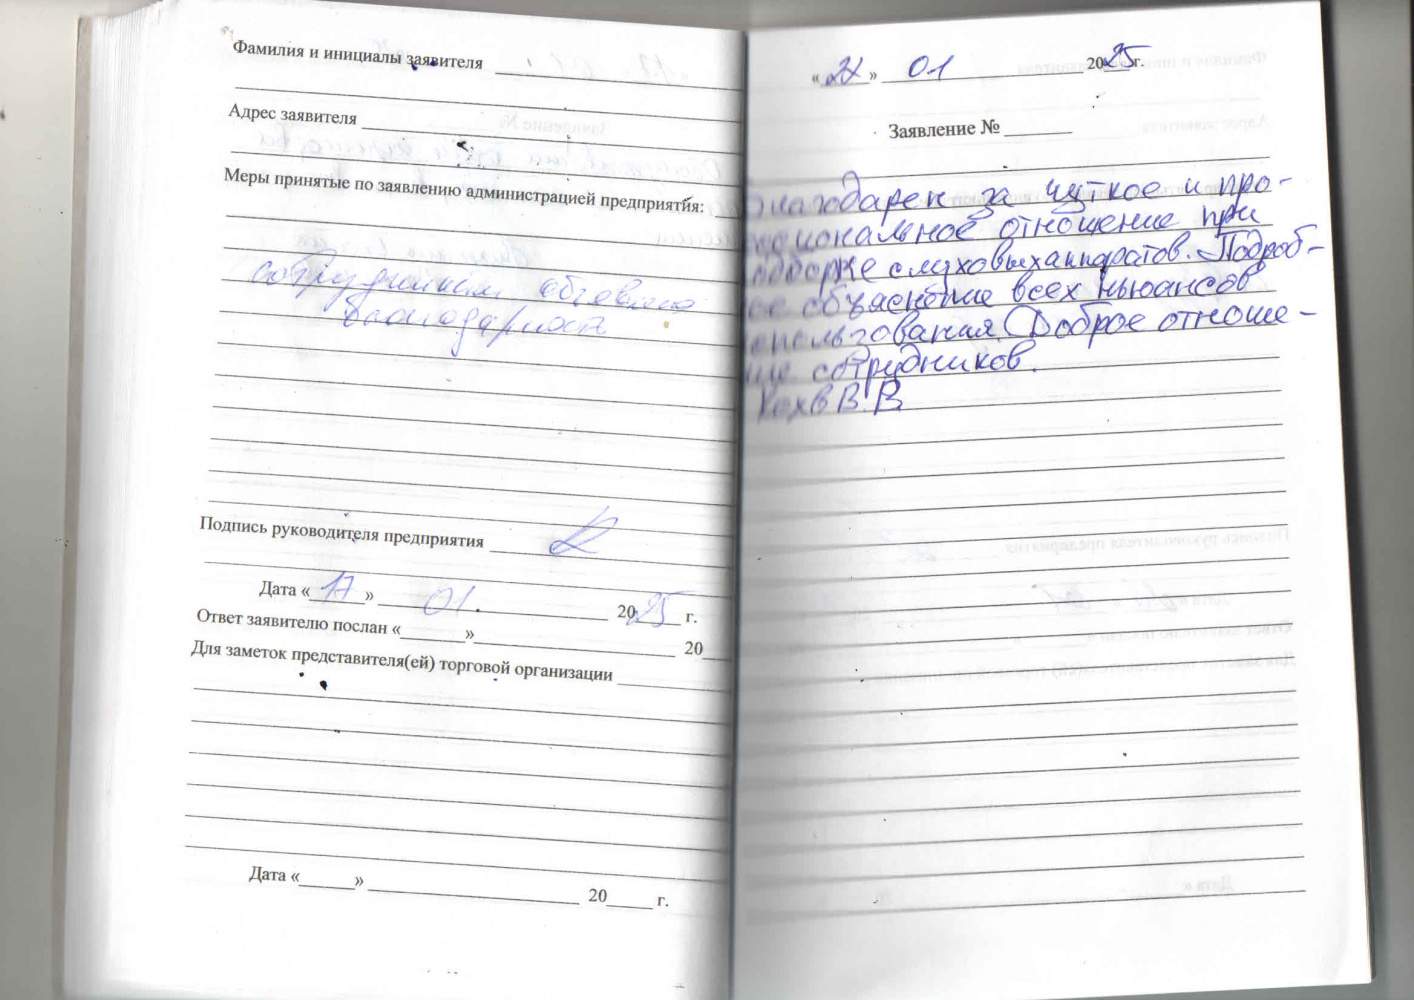 Фамилия и инициалы заявителя
Адрес заявителя
Меры принятые по заявлению администрацией предприятия:
сотрудникам объявлена
благодарность
Подпись руководителя предприятия
Дата «17» 01 2025 г.
Ответ заявителю послан «______» 20
Для заметок представителя(ей) торговой организации
Дата «______» 20_____ г.
« » 01 2025 г.
Заявление №
Благодарен за чуткое и про-
циональное отношение при
подборке слуховых аппаратов. Подроб-
ое объяснение всех ньюансов
использования. Доброе отноше-
ние сотрудников.
В.В.